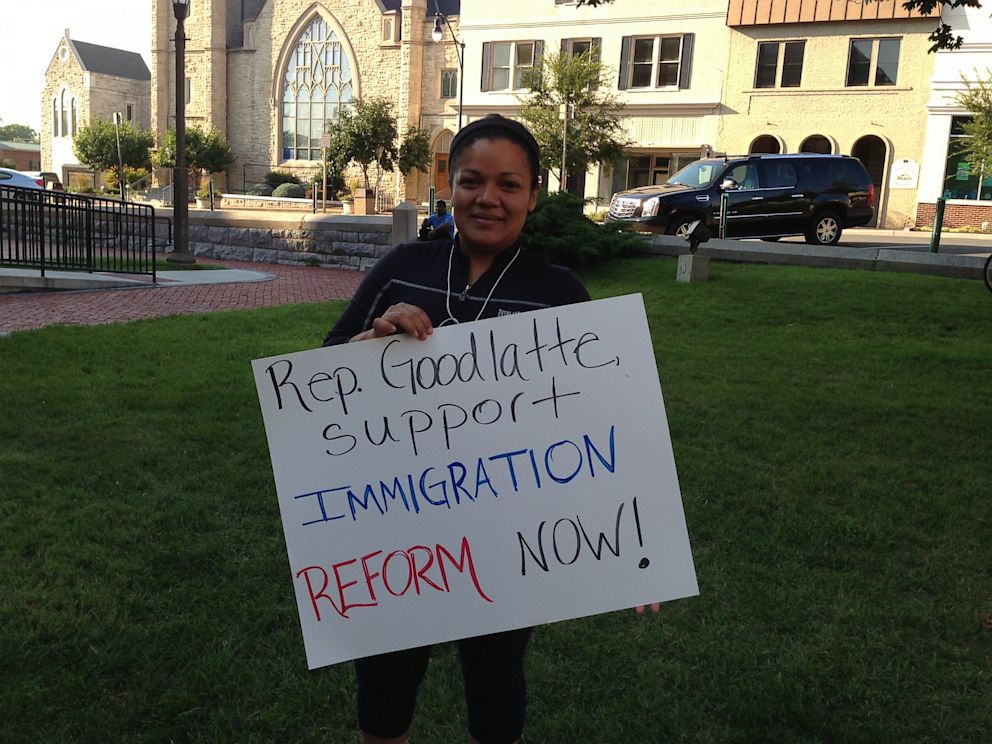 Rep. Goodlatte,
support
IMMIGRATION
REFORM NOW!